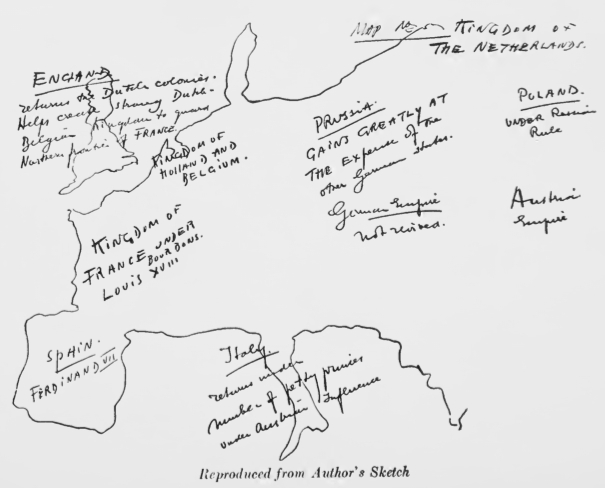 MAP No KINGDOM OF
THE NETHERLANDS.
ENGLAND
returns the Dutch colonies.
Helps create strong Dutch-
Belgian Kingdom to guard
Northern frontier of FRANCE.
KINGDOM OF
HOLLAND AND
BELGIUM.
PRUSSIA.
GAINS GREATLY AT
THE Expense of the
other German States.
German Empire
not revived.
POLAND.
UNDER Russian
Rule
Austria
Empire
KINGDOM OF
FRANCE UNDER
BOURBONS.
LOUIS XVIII
SPAIN.
FERDINAND VII
Italy.
returns under
number of petty princes
under Austrian Influence
Reproduced from Author's Sketch